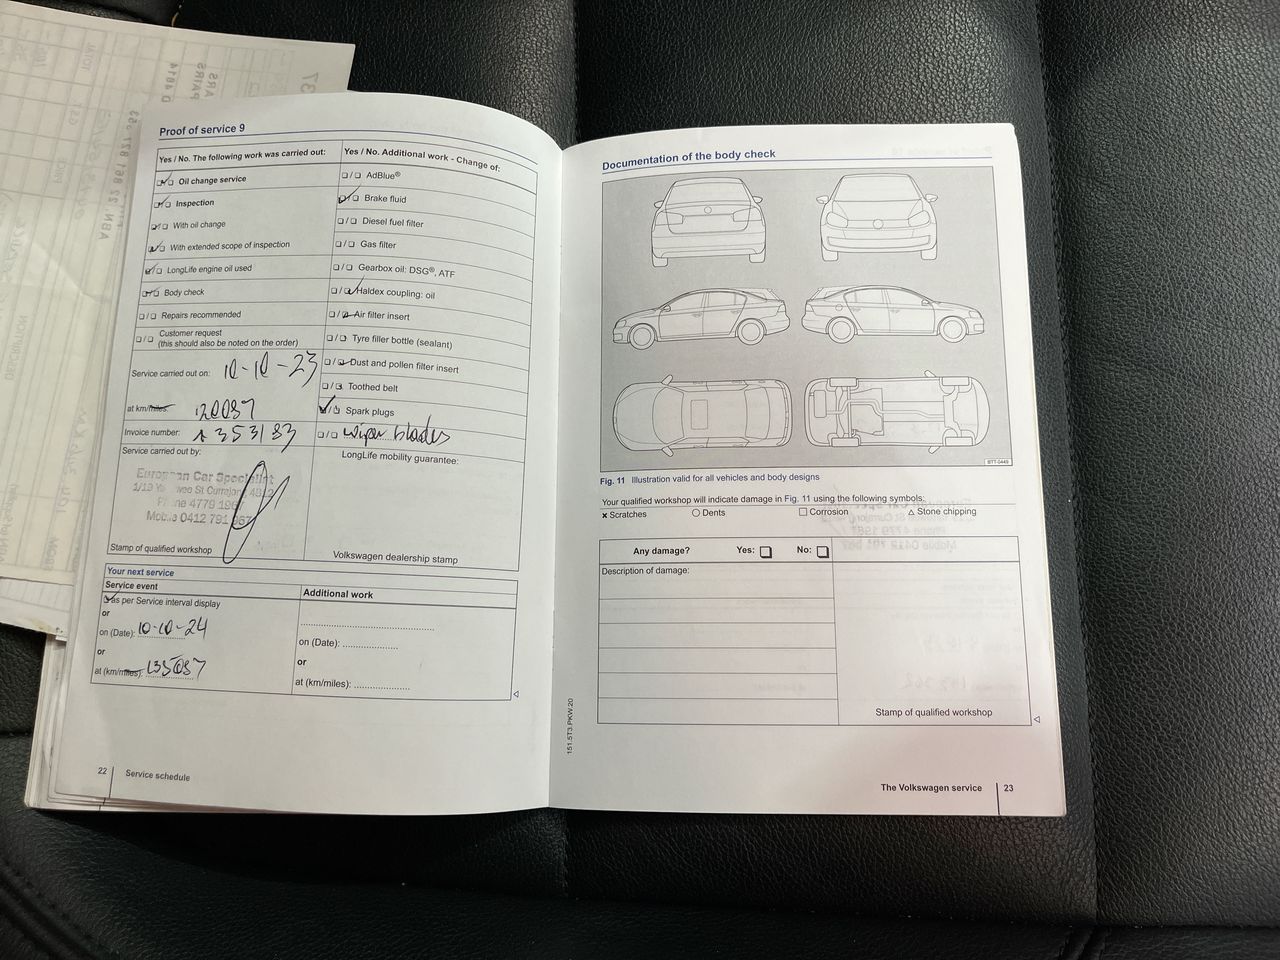 Proof of service 9
Yes / No. The following work was carried out:
☑/☐ Oil change service
☑/☐ Inspection
☑/☐ With oil change
☑/☐ With extended scope of inspection
☑/☐ LongLife engine oil used
☑/☐ Body check
☐/☐ Repairs recommended
☐/☐ Customer request
(this should also be noted on the order)
Service carried out on: 10-10-23
at km/miles: 120087
Invoice number: A 353183
Service carried out by:
European Car Specialist
Phone 4779
Mobile 0412 791 867
Stamp of qualified workshop
Yes / No. Additional work - Change of:
☐/☐ AdBlue®
☑/☐ Brake fluid
☐/☐ Diesel fuel filter
☐/☐ Gas filter
☐/☐ Gearbox oil: DSG®, ATF
☐/☑ Haldex coupling: oil
☐/☑ Air filter insert
☐/☐ Tyre filler bottle (sealant)
☐/☑ Dust and pollen filter insert
☐/☑ Toothed belt
☑/☐ Spark plugs
☐/☐ wiper blades
LongLife mobility guarantee:
Volkswagen dealership stamp
Your next service
Service event
☑ as per Service interval display
or
on (Date): 10-10-24
or
at (km/miles): 135087
Additional work
on (Date):
or
at (km/miles):
22
Service schedule
Documentation of the body check
BTT-0449
Fig. 11 Illustration valid for all vehicles and body designs
Your qualified workshop will indicate damage in Fig. 11 using the following symbols:
× Scratches
○ Dents
□ Corrosion
△ Stone chipping
Any damage? Yes: ☐ No: ☐
Description of damage:
Stamp of qualified workshop
151.5T3.PKW.20
The Volkswagen service
23